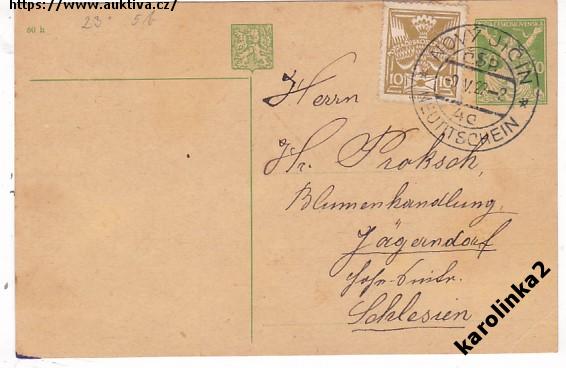 https://www.auktiva.cz/
23 56
50 h
10 10
ČESKOSLOVENSKÁ
NOVÝ JIČÍN
ČSP
V.22-8
4c
NEUTITSCHEIN
Herrn
Hr. Proksch,
Blumenhandlung,
Jägerndorf
Schlesien
karolinka2